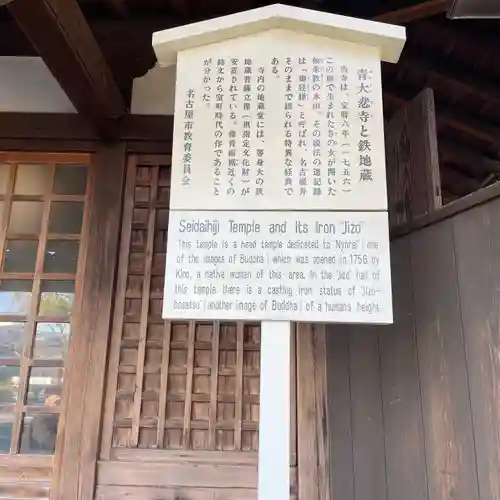 青大悲寺と鉄地蔵
当寺は、宝暦六年(一七五六)
この頃で生まれたきの女が開いた
如来教の本山。その説法の道記録
は「御経様」と呼ばれ、名古屋弁
そのままで綴られる特異な経典で
ある。
寺内の地蔵堂には、等身大の鉄
地蔵菩薩立像(県指定文化財)が
安置されている。
銘文から室町時代の作であること
が分かった。
名古屋市教育委員会
Seidaihiji Temple and Its Iron "Jizo"
This temple is a head temple dedicated to "Nyorai" (one
of the images of Buddha) which was opened in 1756 by
Kino, a native woman of this area. In the "Jizo" hall of
this temple there is a casting iron statue of "Jizo-
bosatsu" (another image of Buddha) of a humans height.